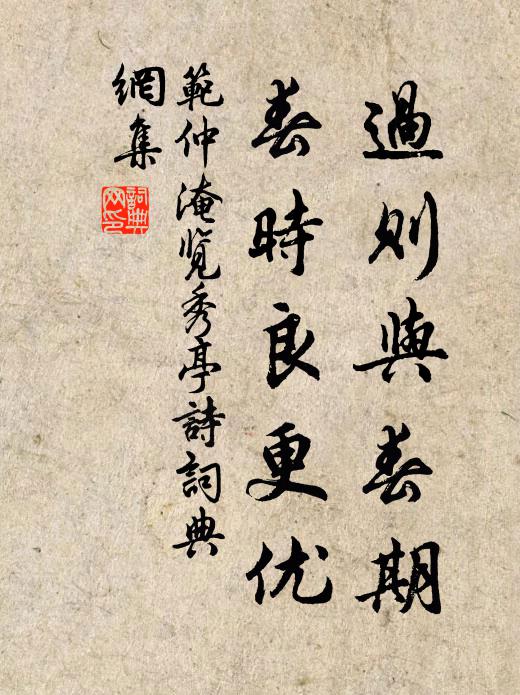 過則與春期
春時良更优
範仲淹览秀亭詩詞典
網集
詞典网印